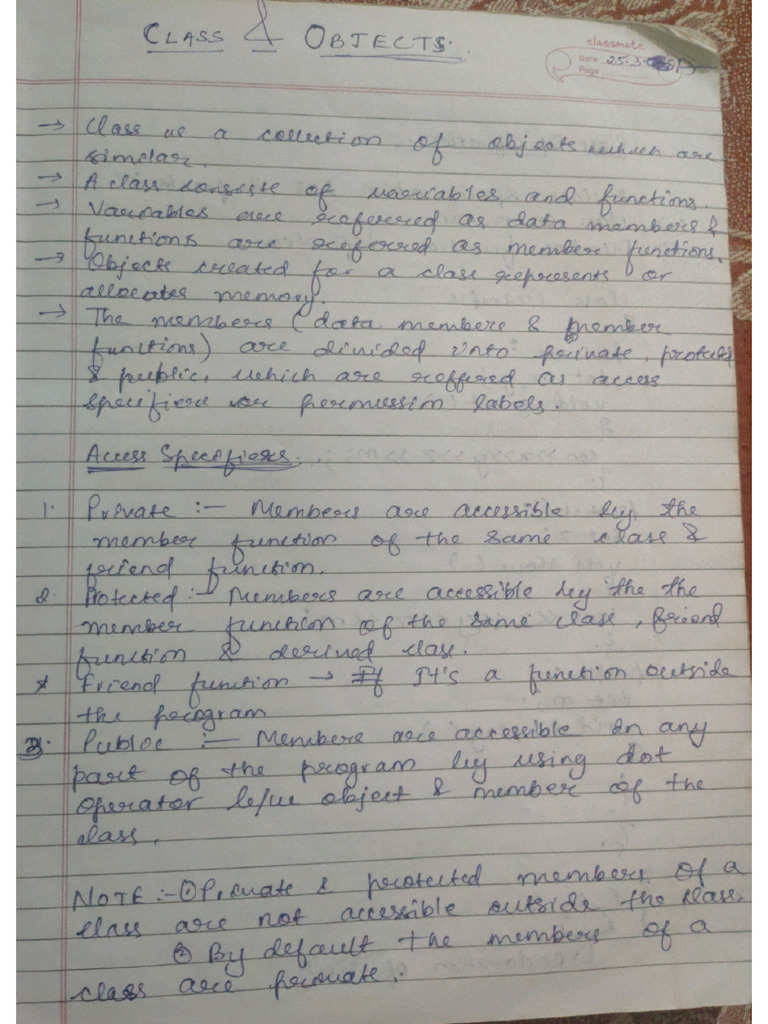 CLASS & OBJECTS.
classmate
Date 25.3.
Page
→ Class is a collection of objects which are
similar.
→ A class consists of variables and functions.
→ Variables are referred as data members &
functions are referred as member functions.
→ Objects created for a class represents or
allocates memory.
→ The members (data members & member
functions) are divided into private, protected
& public, which are reffered as access
specifiers or permission labels.
Access Specifiers.
1. Private :- Members are accessible by the
member function of the same class &
friend function.
2. Protected :- Members are accessible by the the
member function of the same class, friend
function & derived class.
* Friend function → It's a function outside
the program
3. Public :- Members are accessible in any
part of the program by using dot
operator b/w object & member of the
class.
NOTE :- ① Private & protected members of a
class are not accessible outside the class.
② By default the members of a
class are private.